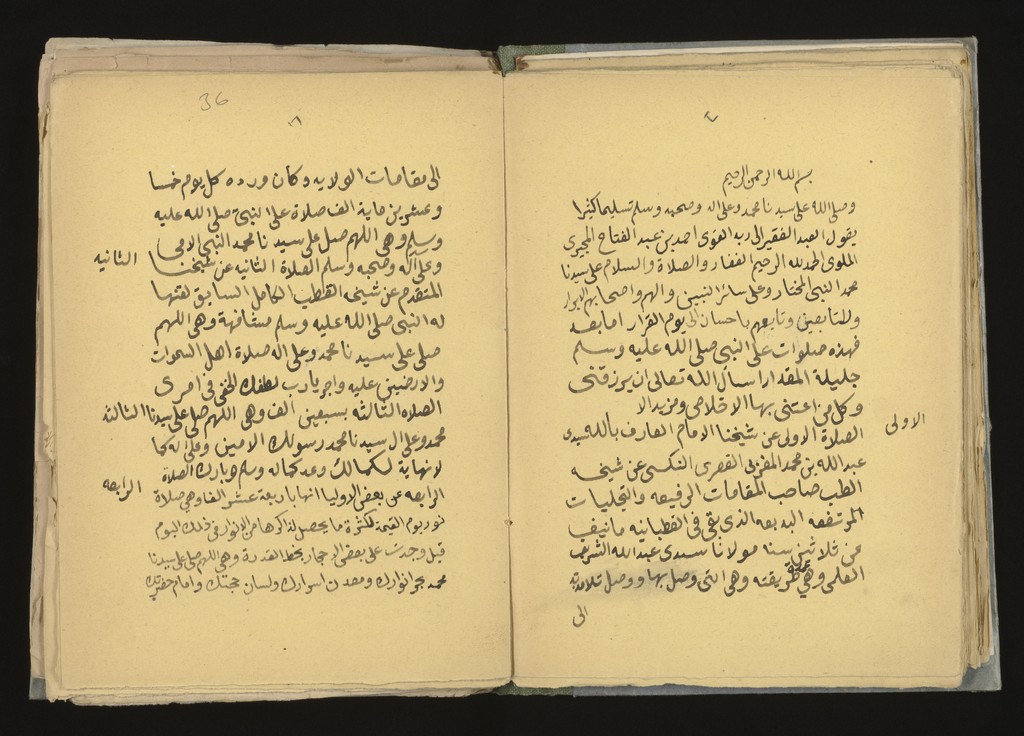 بسم الله الرحمن الرحيم
وصلى الله على سيدنا محمد وعلى اله وصحبه وسلم تسليما كثيرا
يقول العبد الفقير الى ربه القوى احمد بن عبد الفتاح المجيرى
الملوى الحمد لله الرحيم الغفار والصلاة والسلام على سيدنا
محمد النبى المختار وعلى سائر النبيين والهم واصحابهم الابرار
والتابعين وتابعهم باحسان الى يوم القرار اما بعد
فهذه صلوات على النبى صلى الله عليه وسلم
جليلة المقدار اسأل الله تعالى ان يرزقنى
وكل من اعتنى بها الاخلاص ومزيد الا
الاولى
الصلاة الاولى عن شيخنا الامام العارف بالله سيدى
عبد الله بن محمد المغربى القصرى النكسى عن شيخه
القطب صاحب المقامات الرفيعه والتجليات
المرتفعه البديعه الذى بقى فى القطبانيه ما نيف
عن ثلاثين سنا مولانا سيدى عبد الله الشريف
العلمى وهى عمدة طريقته وهى التى وصل بها ووصل تلامذته
الى
36
الى مقامات الولايه وكان ورده كل يوم خمسا
وعشرين ماية الف صلاة على النبى صلى الله عليه
وسلم وهى اللهم صل على سيدنا محمد النبى الامى
وعلى اله وصحبه وسلم الصلاة الثانيه عن شيخنا
الثانيه
المتقدم عن شيخه القطب الكامل السابق لقنها
له النبى صلى الله عليه وسلم مشافهة وهى اللهم
صلى على سيدنا محمد وعلى اله صلاة اهل السموات
والارضين عليه واجر يارب لطفك الخفى فى امرى
الصلاه الثالثه بسبعين الف وهى اللهم صلى على سيدنا
الثالثه
محمد وعلى ال سيدنا محمد رسولك الامين وعلى اله كما
لا نهاية لكمالك وعد كماله وسلم وبارك الصلاة
الرابعه عن بعض الاوليا انها باربعة عشر الفا وهى صلاة
الرابعه
نور يوم القيمة لكثرة ما يحصل لذاكرها من الانوار فى ذلك اليوم
قيل وجدت على بعض الاحجار بخط القدرة وهى اللهم صلى على سيدنا
محمد بحر انوارك ومعدن اسرارك ولسان حجتك وامام حضرتك